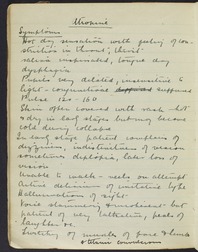 Atropine
Symptoms
Hot dry sensation with feeling of con-
striction in throat, thirst
saliva suspended, tongue dry
dysphagia
Pupils very dilated, insensitive to
light - conjunctivae suffused
Pulse 120 - 160
Skin often flushed with rash - hot
& dry in early stages but may become
cold during collapse
In early stages patient complains of
dizziness, indistinctness of vision
sometimes diplopia, later loss of
vision
Unable to walk - reels on attempt
Active delirium of
hallucinations of sight
Voice stammering & incoherent - but
patient very talkative, peals of
laughter &c.
Twitching of muscles of face & limbs
& often convulsions